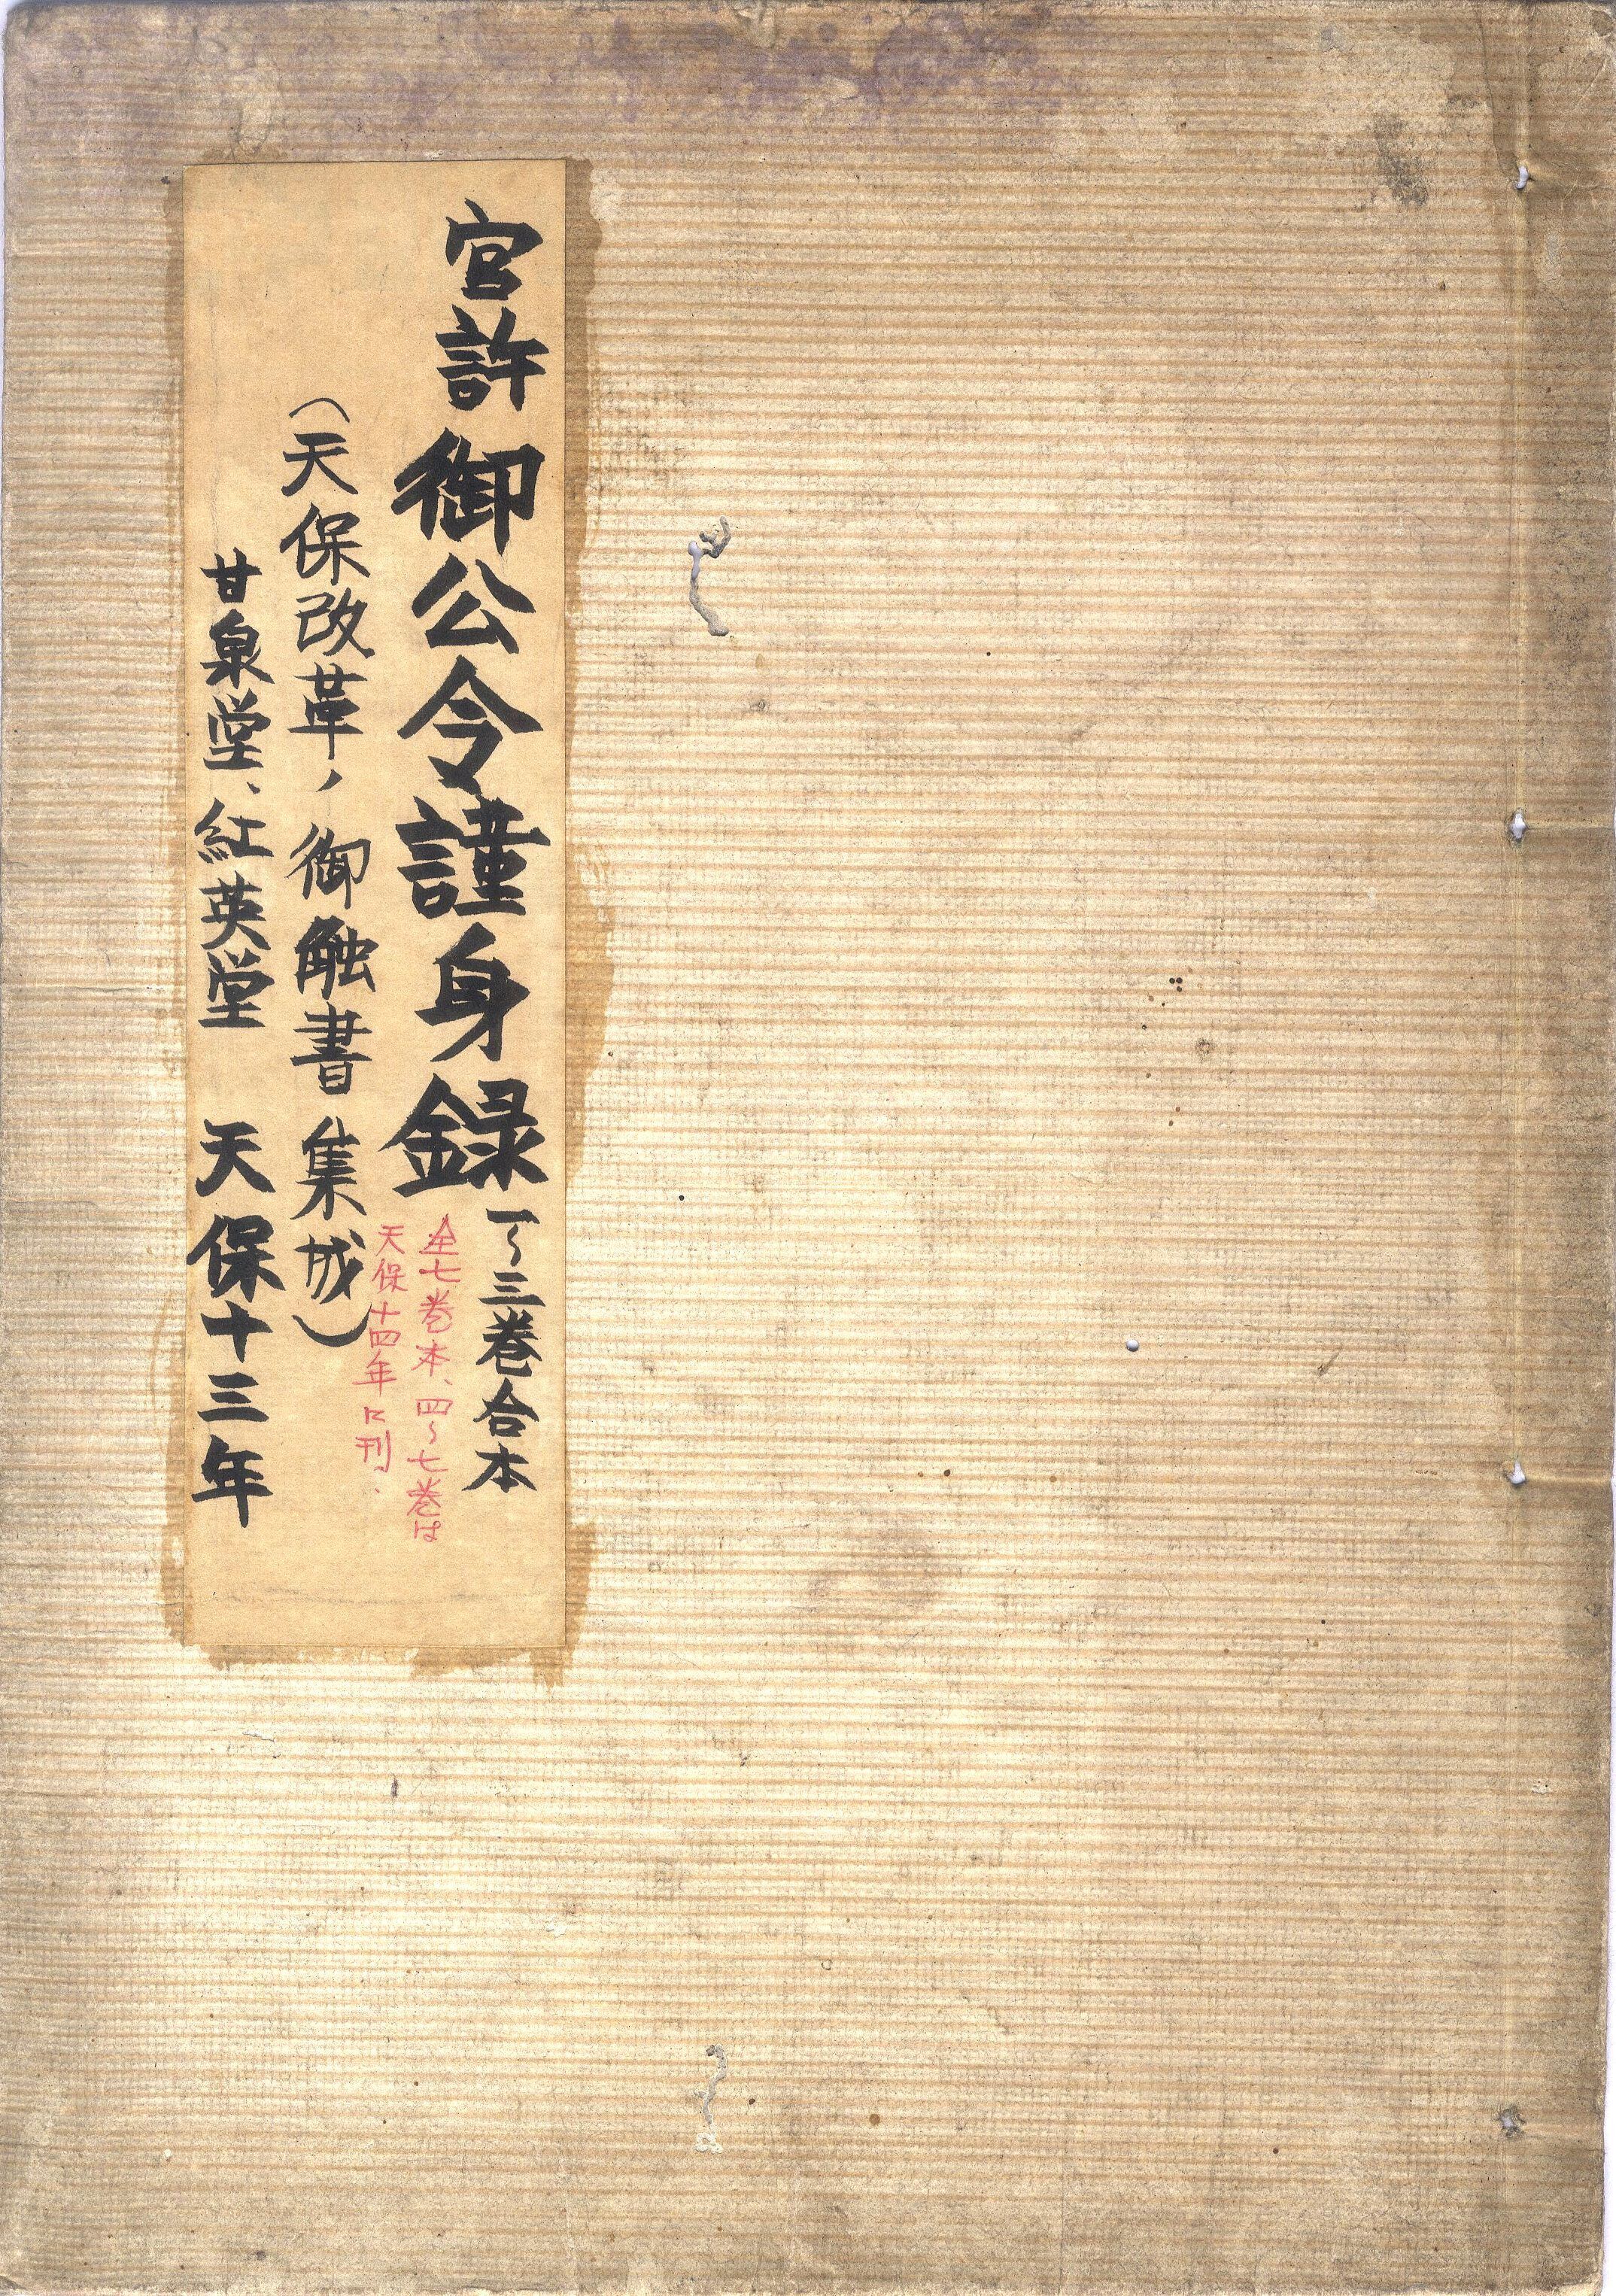 官許御公令謹身録一〜三巻合本
全七巻本、四〜七巻は
天保十四年に刊、
（天保改革ノ御触書集成）
甘泉堂、紅英堂 天保十三年